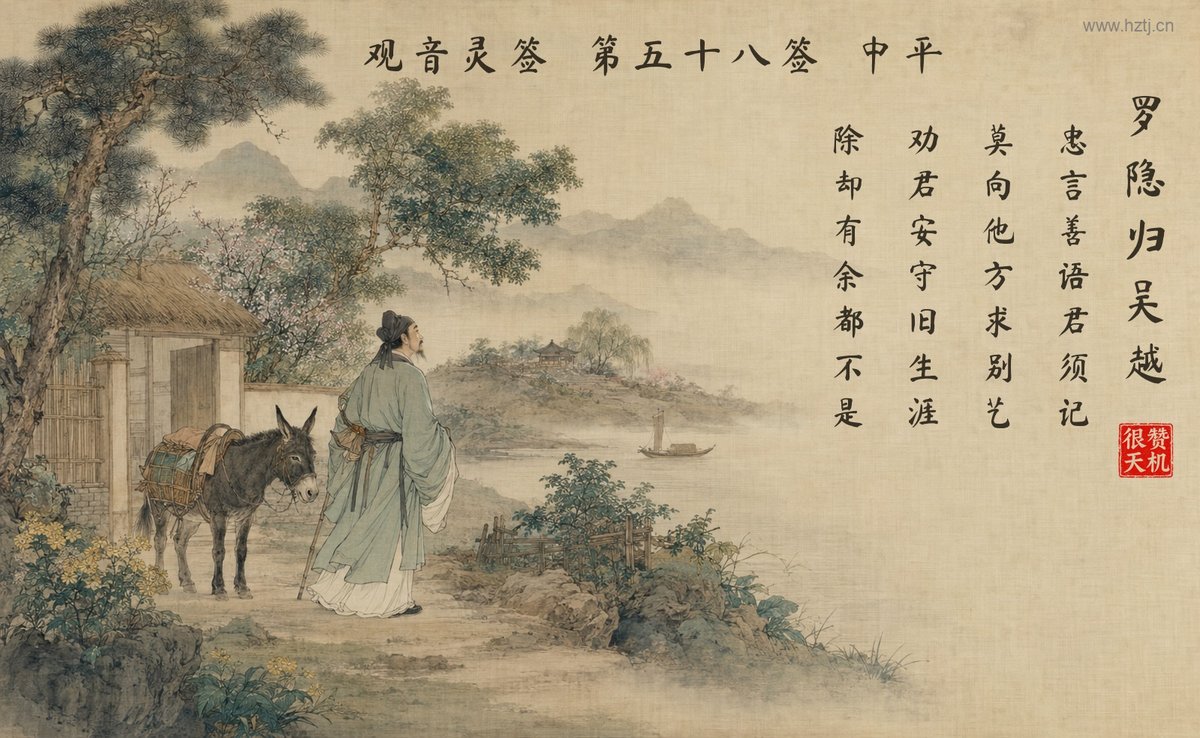 www.hztj.cn
观音灵签 第五十八签 中平
罗隐归吴越
忠言善语君须记
莫向他方求别艺
劝君安守旧生涯
除却有余都不是
赞机
很天